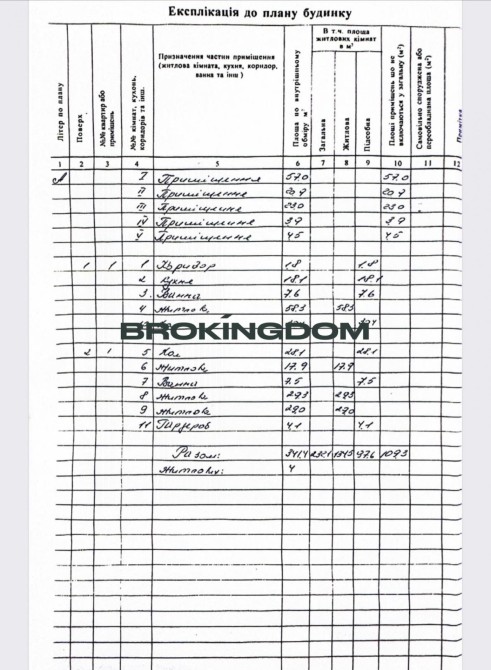 Експлікація до плану будинку
Літер по плану
Поверх
№№ квартир або приміщень
№№ кімнат, кухонь, коридорів та інш.
Призначення частин приміщення
(житлова кімната, кухня, коридор,
ванна та інш )
Площа по внутрішньому обміру м²
В т.ч. площа
житлових кімнат
в м²
Загальна
Житлова
Підсобна
Площі приміщень що не включаються у загальну (м²)
Самовільно споруджена або переобладнана площа (м²)
Примітка
1 2 3 4 5 6 7 8 9 10 11 12
А I Приміщення 57.0 57.0
II Приміщення 20.7 20.7
III Приміщення 23.0 23.0
IV Приміщення 3.9 3.9
V Приміщення 4.5 4.5
1 1 1 Коридор 1.8 1.8
2 Кухня 18.1 18.1
3 Ванна 7.6 7.6
4 Житлова 58.3 58.3
BROKINGDOM
2 1 5 Хол 28.1 28.1
6 Житлова 17.9 17.9
7 Ванна 7.5 7.5
8 Житлова 29.3 29.3
9 Житлова 29.0 29.0
11 Гардероб 4.1 4.1
Разом: 341.4 232.1 134.5 97.6 109.3
Житлових: 4